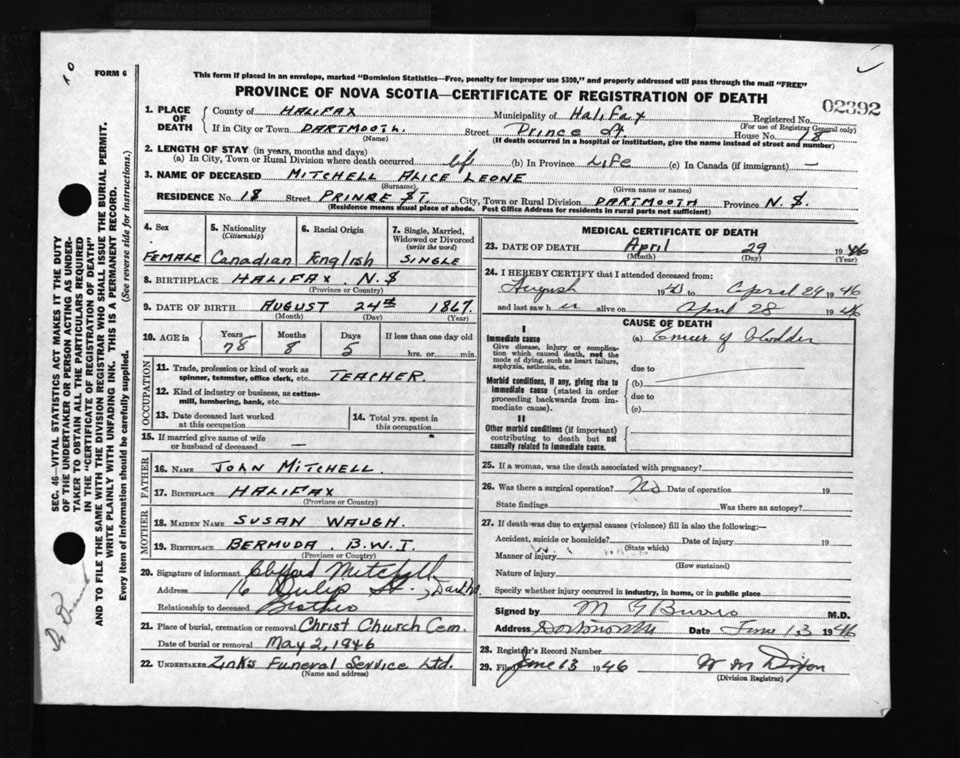 FORM 6
This form if placed in an envelope, marked "Dominion Statistics—Free, penalty for improper use $300," and properly addressed will pass through the mail "FREE"
PROVINCE OF NOVA SCOTIA—CERTIFICATE OF REGISTRATION OF DEATH
02392
1. PLACE OF DEATH
County of HALIFAX Municipality of Halifax Registered No.
(For use of Registrar General only)
If in City or Town DARTMOOTH. Street Prince St. House No. 18
(Name) (If death occurred in a hospital or institution, give the name instead of street and number)
2. LENGTH OF STAY (in years, months and days)
(a) In City, Town or Rural Division where death occurred life (b) In Province LIFE (c) In Canada (if immigrant) —
3. NAME OF DECEASED MITCHELL ALICE LEONE
(Surname) (Given name or names)
RESIDENCE No. 18 Street PRINCE ST. City, Town or Rural Division DARTMOOTH Province N.S.
(Residence means usual place of abode. Post Office Address for residents in rural parts not sufficient)
4. Sex
FEMALE
5. Nationality
(Citizenship)
Canadian
6. Racial Origin
English
7. Single, Married, Widowed or Divorced
(write the word)
SINGLE
8. BIRTHPLACE HALIFAX N.S
(Province or Country)
9. DATE OF BIRTH AUGUST 24TH 1867.
(Month) (Day) (Year)
10. AGE in
Years 78
Months 8
Days 5
If less than one day old
hrs. or min.
OCCUPATION
11. Trade, profession or kind of work as
spinner, teamster, office clerk, etc. TEACHER.
12. Kind of industry or business, as cotton-
mill, lumbering, bank, etc.
13. Date deceased last worked
at this occupation
14. Total yrs. spent in
this occupation
15. If married give name of wife
or husband of deceased —
FATHER
16. NAME JOHN MITCHELL.
17. BIRTHPLACE HALIFAX
(Province or Country)
MOTHER
18. MAIDEN NAME SUSAN WAUGH.
19. BIRTHPLACE BERMUDA B.W.I.
(Province or Country)
20. Signature of informant Clifford Mitchell
Address 16 Tulip St.,
Relationship to deceased Brother
21. Place of burial, cremation or removal Christ Church Cem.
Date of burial or removal May 2, 1946
22. UNDERTAKER Zink's Funeral Service Ltd.
(Name and address)
MEDICAL CERTIFICATE OF DEATH
23. DATE OF DEATH April 29 1946
(Month) (Day) (Year)
24. I HEREBY CERTIFY that I attended deceased from:
August 19 to April 29 1946
and last saw her alive on April 28 1946
CAUSE OF DEATH
I
Immediate cause
Give disease, injury or complica-
tion which caused death, not the
mode of dying, such as heart failure,
asphyxia, asthenia, etc.
(a) of bladder
due to
Morbid conditions, if any, giving rise to
immediate cause (stated in order
proceeding backwards from im-
mediate cause).
(b)
due to
(c)
II
Other morbid conditions (if important)
contributing to death but not
causally related to immediate cause.
25. If a woman, was the death associated with pregnancy?
26. Was there a surgical operation? No Date of operation 19
State findings Was there an autopsy?
27. If death was due to external causes (violence) fill in also the following:—
Accident, suicide or homicide? Date of injury 19
(State which)
Manner of injury
(How sustained)
Nature of injury
Specify whether injury occurred in industry, in home, or in public place
Signed by M G Burris M.D.
Address Dartmouth Date June 13 1946
28. Registrar's Record Number
29. Filed June 13 1946 W M Dixon
(Division Registrar)
SEC. 46—VITAL STATISTICS ACT MAKES IT THE DUTY
OF THE UNDERTAKER OR PERSON ACTING AS UNDER-
TAKER TO OBTAIN ALL THE PARTICULARS REQUIRED
IN THE "CERTIFICATE OF REGISTRATION OF DEATH"
AND TO FILE THE SAME WITH THE DIVISION REGISTRAR WHO SHALL ISSUE THE BURIAL PERMIT.
WRITE PLAINLY WITH UNFADING INK. THIS IS A PERMANENT RECORD.
Every item of information should be carefully supplied. (See reverse side for instructions.)